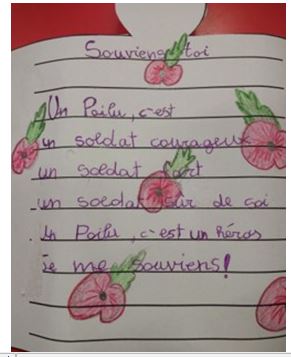 Souviens toi
Un Poilu, c'est
un soldat courageux
un soldat fort
un soldat sûr de soi
Un Poilu, c'est un héros
Je me souviens!